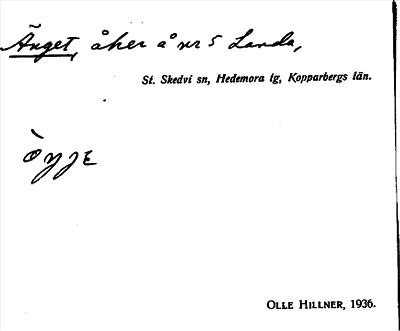 Änget, åker å nr 5 Landa,
St. Skedvi sn, Hedemora tg, Kopparbergs län.
OLLE HILLNER, 1936.